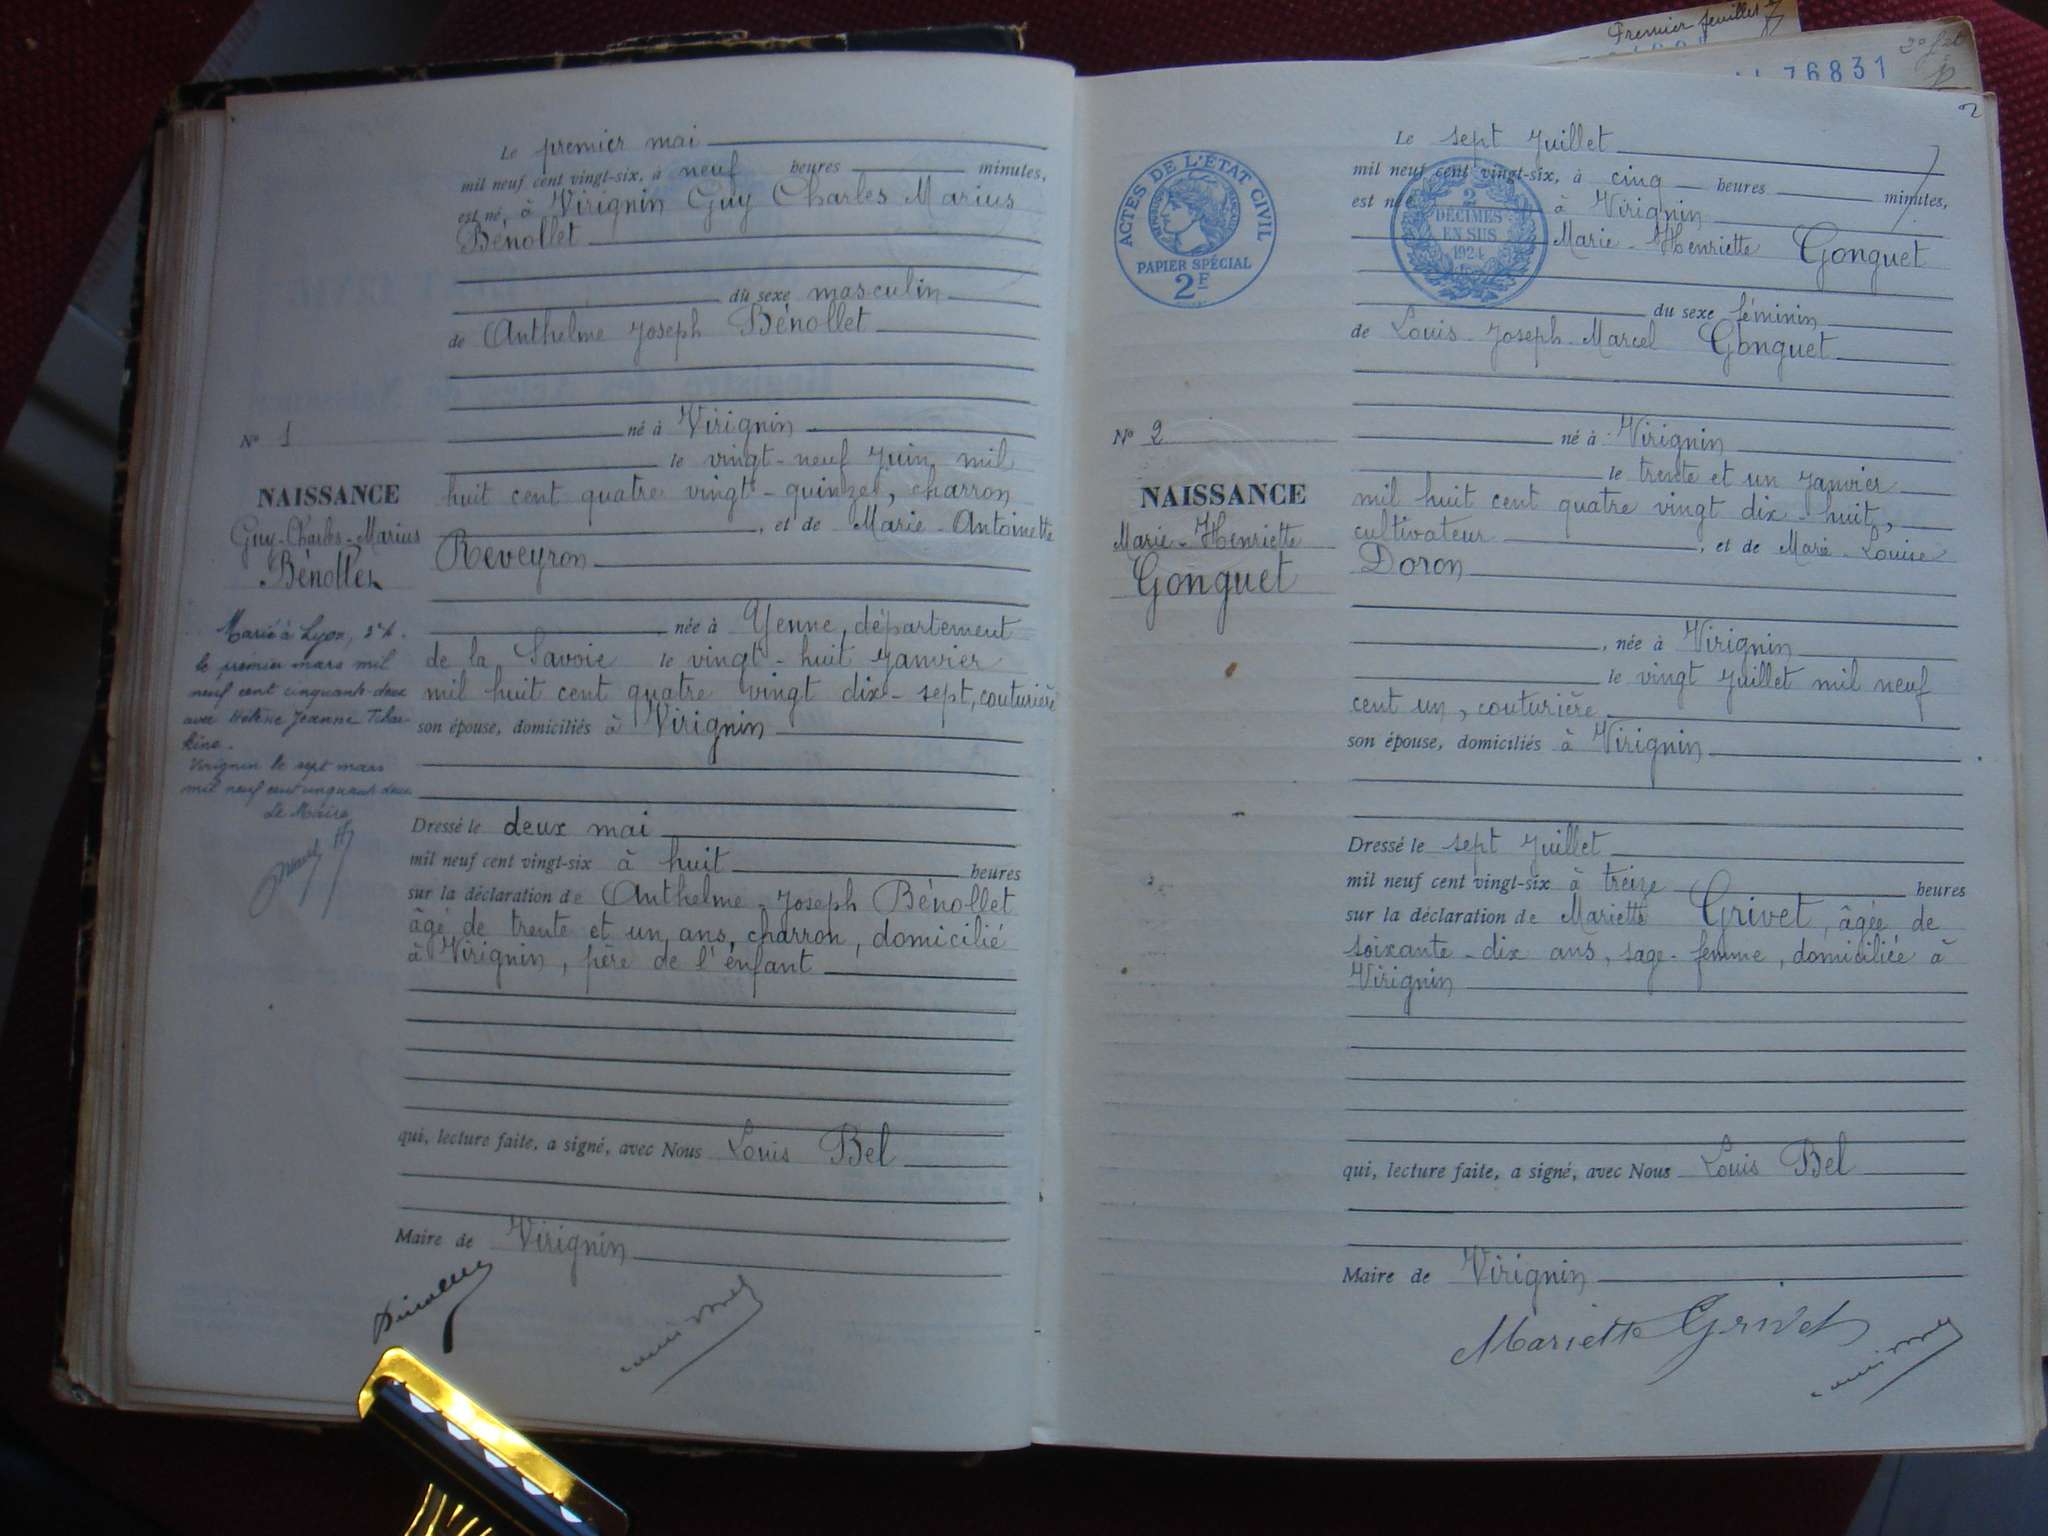 Le premier mai
mil neuf cent vingt-six, à neuf heures minutes,
est né, à Virignin Guy Charles Marius
Bénollet
du sexe masculin
de Anthelme Joseph Bénollet
né à Virignin
le vingt-neuf Juin mil
huit cent quatre vingt-quinze, charron
, et de Marie-Antoinette
Reveyron
née à Yenne, département
de la Savoie le vingt-huit Janvier
mil huit cent quatre vingt dix-sept, couturière
son épouse, domiciliés à Virignin
Dressé le deux mai
mil neuf cent vingt-six à huit heures
sur la déclaration de Anthelme-Joseph Bénollet
âgé de trente et un ans, charron, domicilié
à Virignin, père de l'enfant
qui, lecture faite, a signé, avec Nous Louis Bel
Maire de Virignin
N° 1
NAISSANCE
Guy-Charles-Marius
Bénollet
Marié à Lyon,
le premier mars mil
neuf cent cinquante-deux
avec Hélène Jeanne
Virignin le sept mars
mil neuf cent cinquante deux
Le Maire
Premier feuillet
76831
2
Le sept Juillet
mil neuf cent vingt-six, à cinq heures minutes,
est né à Virignin
Marie-Henriette Gonguet
du sexe féminin
de Louis-Joseph-Marcel Gonguet
né à Virignin
le trente et un Janvier
mil huit cent quatre vingt dix-huit,
cultivateur , et de Marie-Louise
Doron
, née à Virignin
le vingt Juillet mil neuf
cent un, couturière
son épouse, domiciliés à Virignin
Dressé le sept Juillet
mil neuf cent vingt-six à treize heures
sur la déclaration de Mariette Grivet, âgée de
soixante-dix ans, sage-femme, domiciliée à
Virignin
qui, lecture faite, a signé, avec Nous Louis Bel
Maire de Virignin
Mariette Grivet
ACTES DE L'ÉTAT CIVIL
PAPIER SPÉCIAL
2F
2
DÉCIMES
EN SUS
1924
N° 2
NAISSANCE
Marie-Henriette
Gonguet